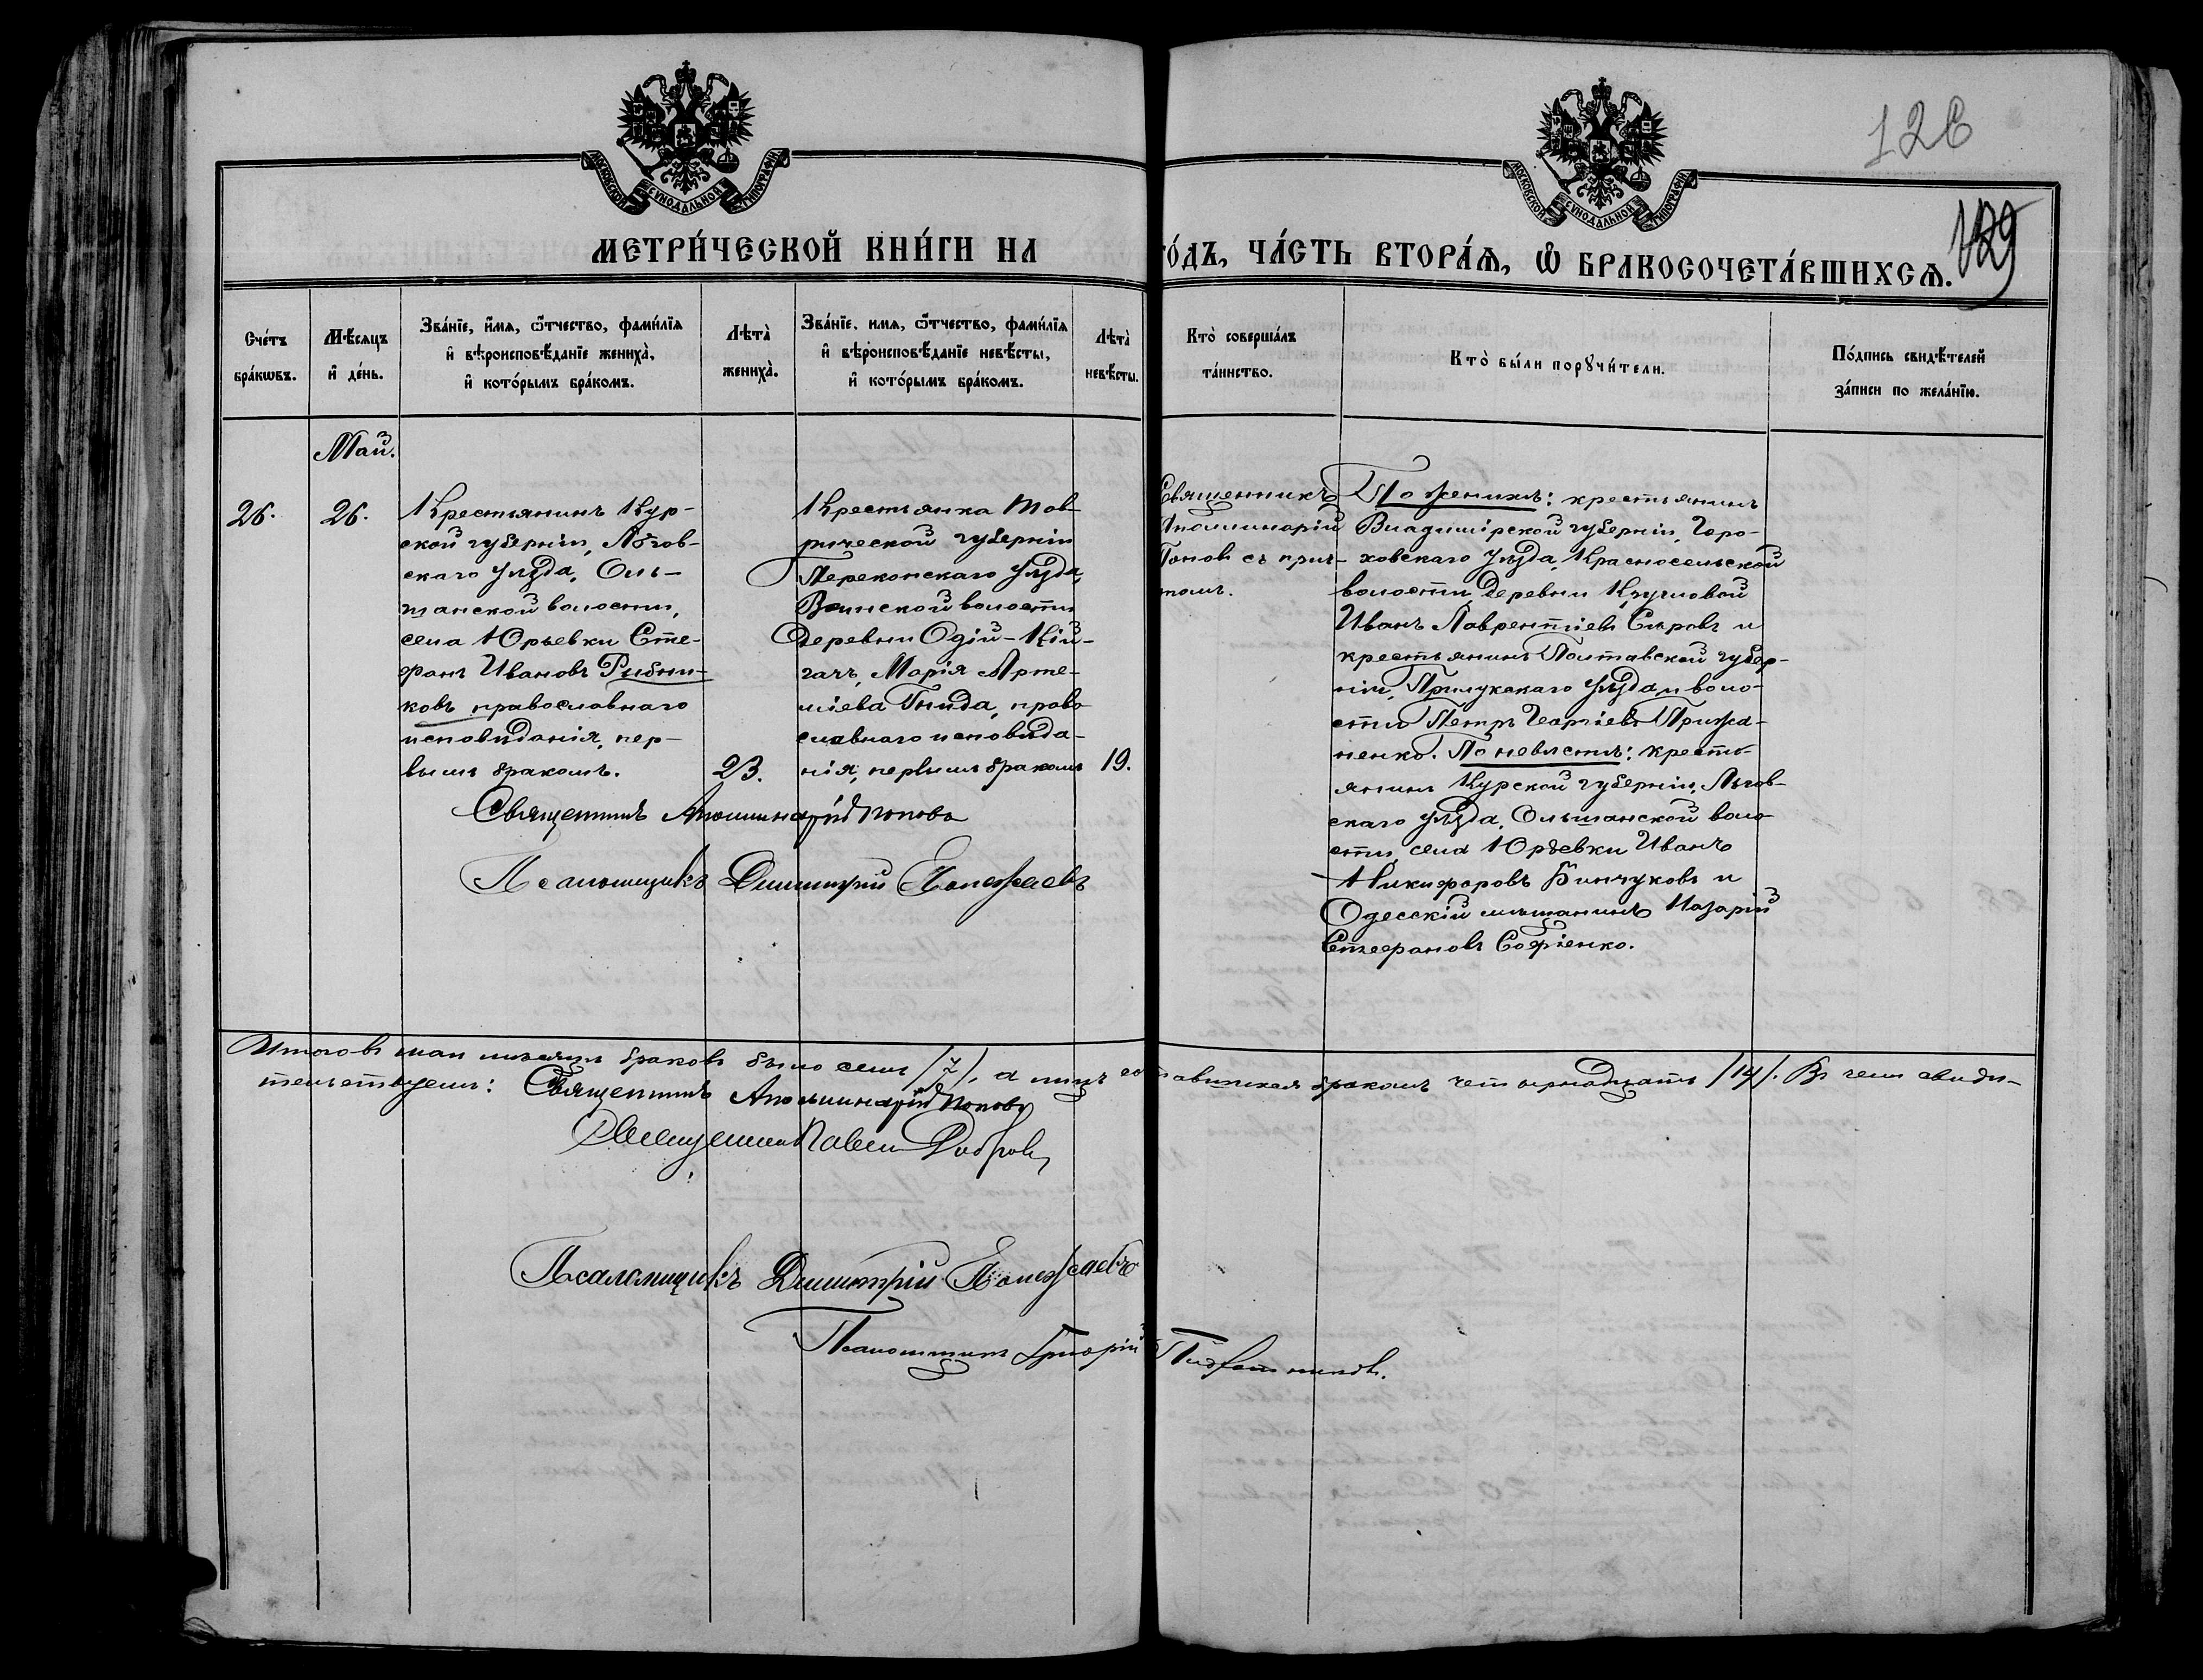 126
129
МОСКОВСКОЙ СѴНОДАЛЬНОЙ ТИПОГРАФІИ
МОСКОВСКОЙ СѴНОДАЛЬНОЙ ТИПОГРАФІИ
МЕТРИ́ЧЕСКОЙ КНИ́ГИ НА
ГО́ДЪ, ЧА́СТЬ ВТОРА́Ѧ, Ѽ БРАКОСОЧЕТА́ВШИХСѦ.
Сче́тъ
бра́кѡвъ.
Мѣ́сяцъ
и҆ де́нь.
Зва́нїе, и҆́мя, ѻ҆́тчество, фами́лїя
и҆ вѣроисповѣ́данїе жениха̀,
и҆ кото́рымъ бра́комъ.
Лѣта̀
жениха̀.
Зва́нїе, имя, ѻ҆́тчество, фами́лїя
и҆ вѣроисповѣ́данїе невѣ́сты,
и҆ кото́рымъ бра́комъ.
Лѣта̀
невѣ́сты.
Кто̀ соверша́лъ
та́инство.
Кто̀ бы́ли порꙋчи́тели.
По́дпись свидѣ́телей
за́писи по жела́нїю.
Май.
26.
26.
Крестьянинъ Кур-
ской губерніи, Льгов-
скаго уѣзда, Оль-
шанской волости,
села Юрьевки Сте-
фанъ Ивановъ Рыбни-
ковъ, православнаго
исповѣданія, пер-
вымъ бракомъ.
23.
Крестьянка Тав-
рической губерніи
Перекопскаго уѣзда,
Воинской волости
деревни Одій-Кій-
гачъ, Марія Арте-
міева Гнида, право-
славнаго исповѣда-
нія, первымъ бракомъ
19.
Священникъ
Аполлинарій
Поповъ съ прич-
томъ.
По женихѣ: крестьянинъ
Владимірской губерніи, Горо-
ховскаго уѣзда, Красносельской
волости деревни Кругловой
Иванъ Лаврентіевъ Сыровъ и
крестьянинъ Полтавской губер-
ніи, Прилукскаго уѣзда и воло-
сти Петръ Георгіевъ Прижа-
ненко. По невѣстѣ: кресть-
янинъ Курской губерніи, Льгов-
скаго уѣзда, Ольшанской воло-
сти, села Юрьевки Иванъ
Никифоровъ Бинчуковъ и
Одесскій мѣщанинъ Назарій
Стефановъ Софіенко.
Священникъ Аполлинарій Поповъ
Псаломщикъ Димитрій Полежаевъ
Итого въ маѣ мѣсяцѣ браковъ было семь /7/, а лицъ сочетавшихся бракомъ четырнадцать /14/. Въ чемъ свидѣ-
тельствуемъ: Священникъ Аполлинарій Поповъ
Священникъ Павелъ Добровъ
Псаломщикъ Димитрій Полежаевъ
Псаломщикъ Григорій